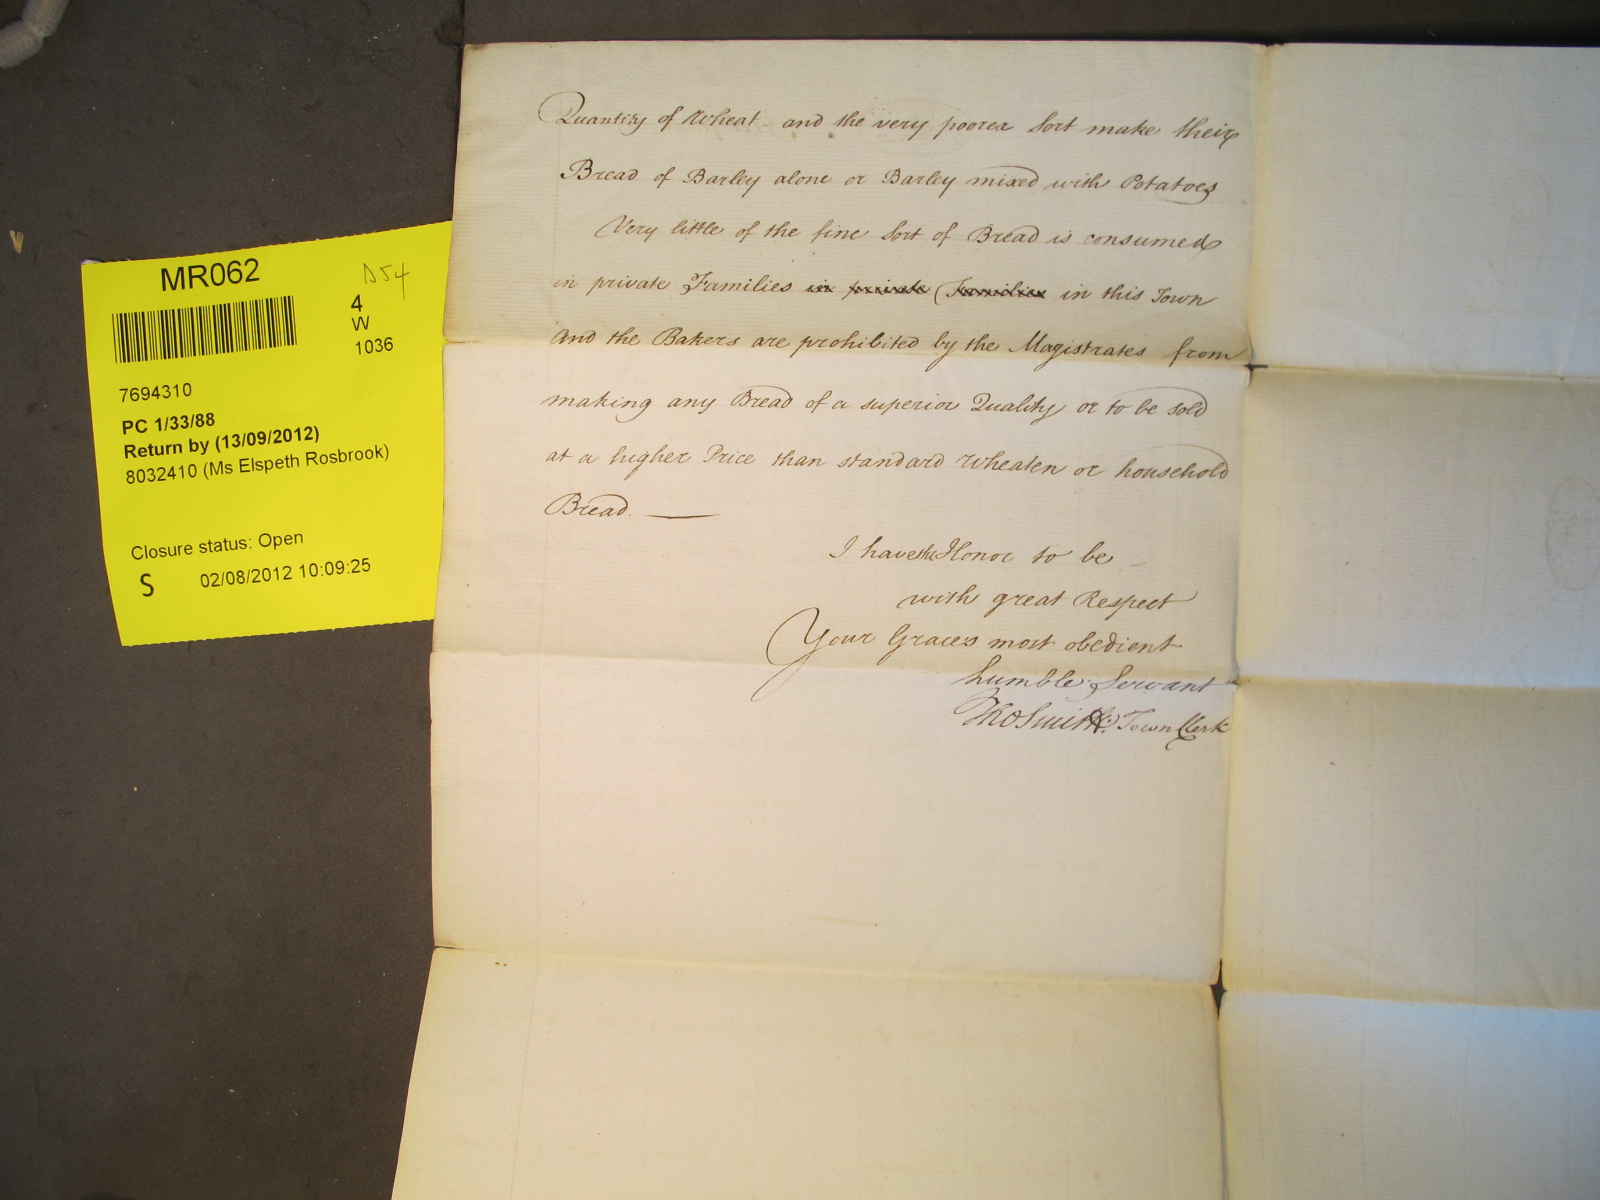 MR062
D54
4
W
1036
7694310
PC 1/33/88
Return by (13/09/2012)
8032410 (Ms Elspeth Rosbrook)
Closure status: Open
S
02/08/2012 10:09:25
Quantity of Wheat - and the very poorer Sort make their
Bread of Barley alone or Barley mixed with Potatoes
Very little of the fine Sort of Bread is consumed
in private Families in private Families in this Town
And the Bakers are prohibited by the Magistrates from
making any Bread of a superior Quality or to be sold
at a higher Price than standard Wheaten or household
Bread. —
I have the Honor to be
with great Respect
Your Graces most obedient
humble Servant
Tho Smith Town Clerk